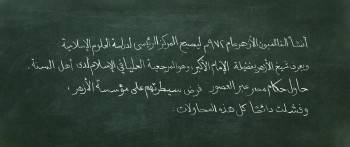 أنشأ الفاطميون الأزهر عام ٩٧٢م ليصبح المركز الرئيسى لدراسة العلوم الإسلامية
ويعرف شيخ الأزهر بفضيلة الإمام الأكبر، وهو المرجعية العليا في الإسلام لدى أهل السنة.
حاول حكام مصر عبر العصور فرض سيطرتهم على مؤسسة الأزهر،
وفشلت دائماً كل هذه المحاولات.